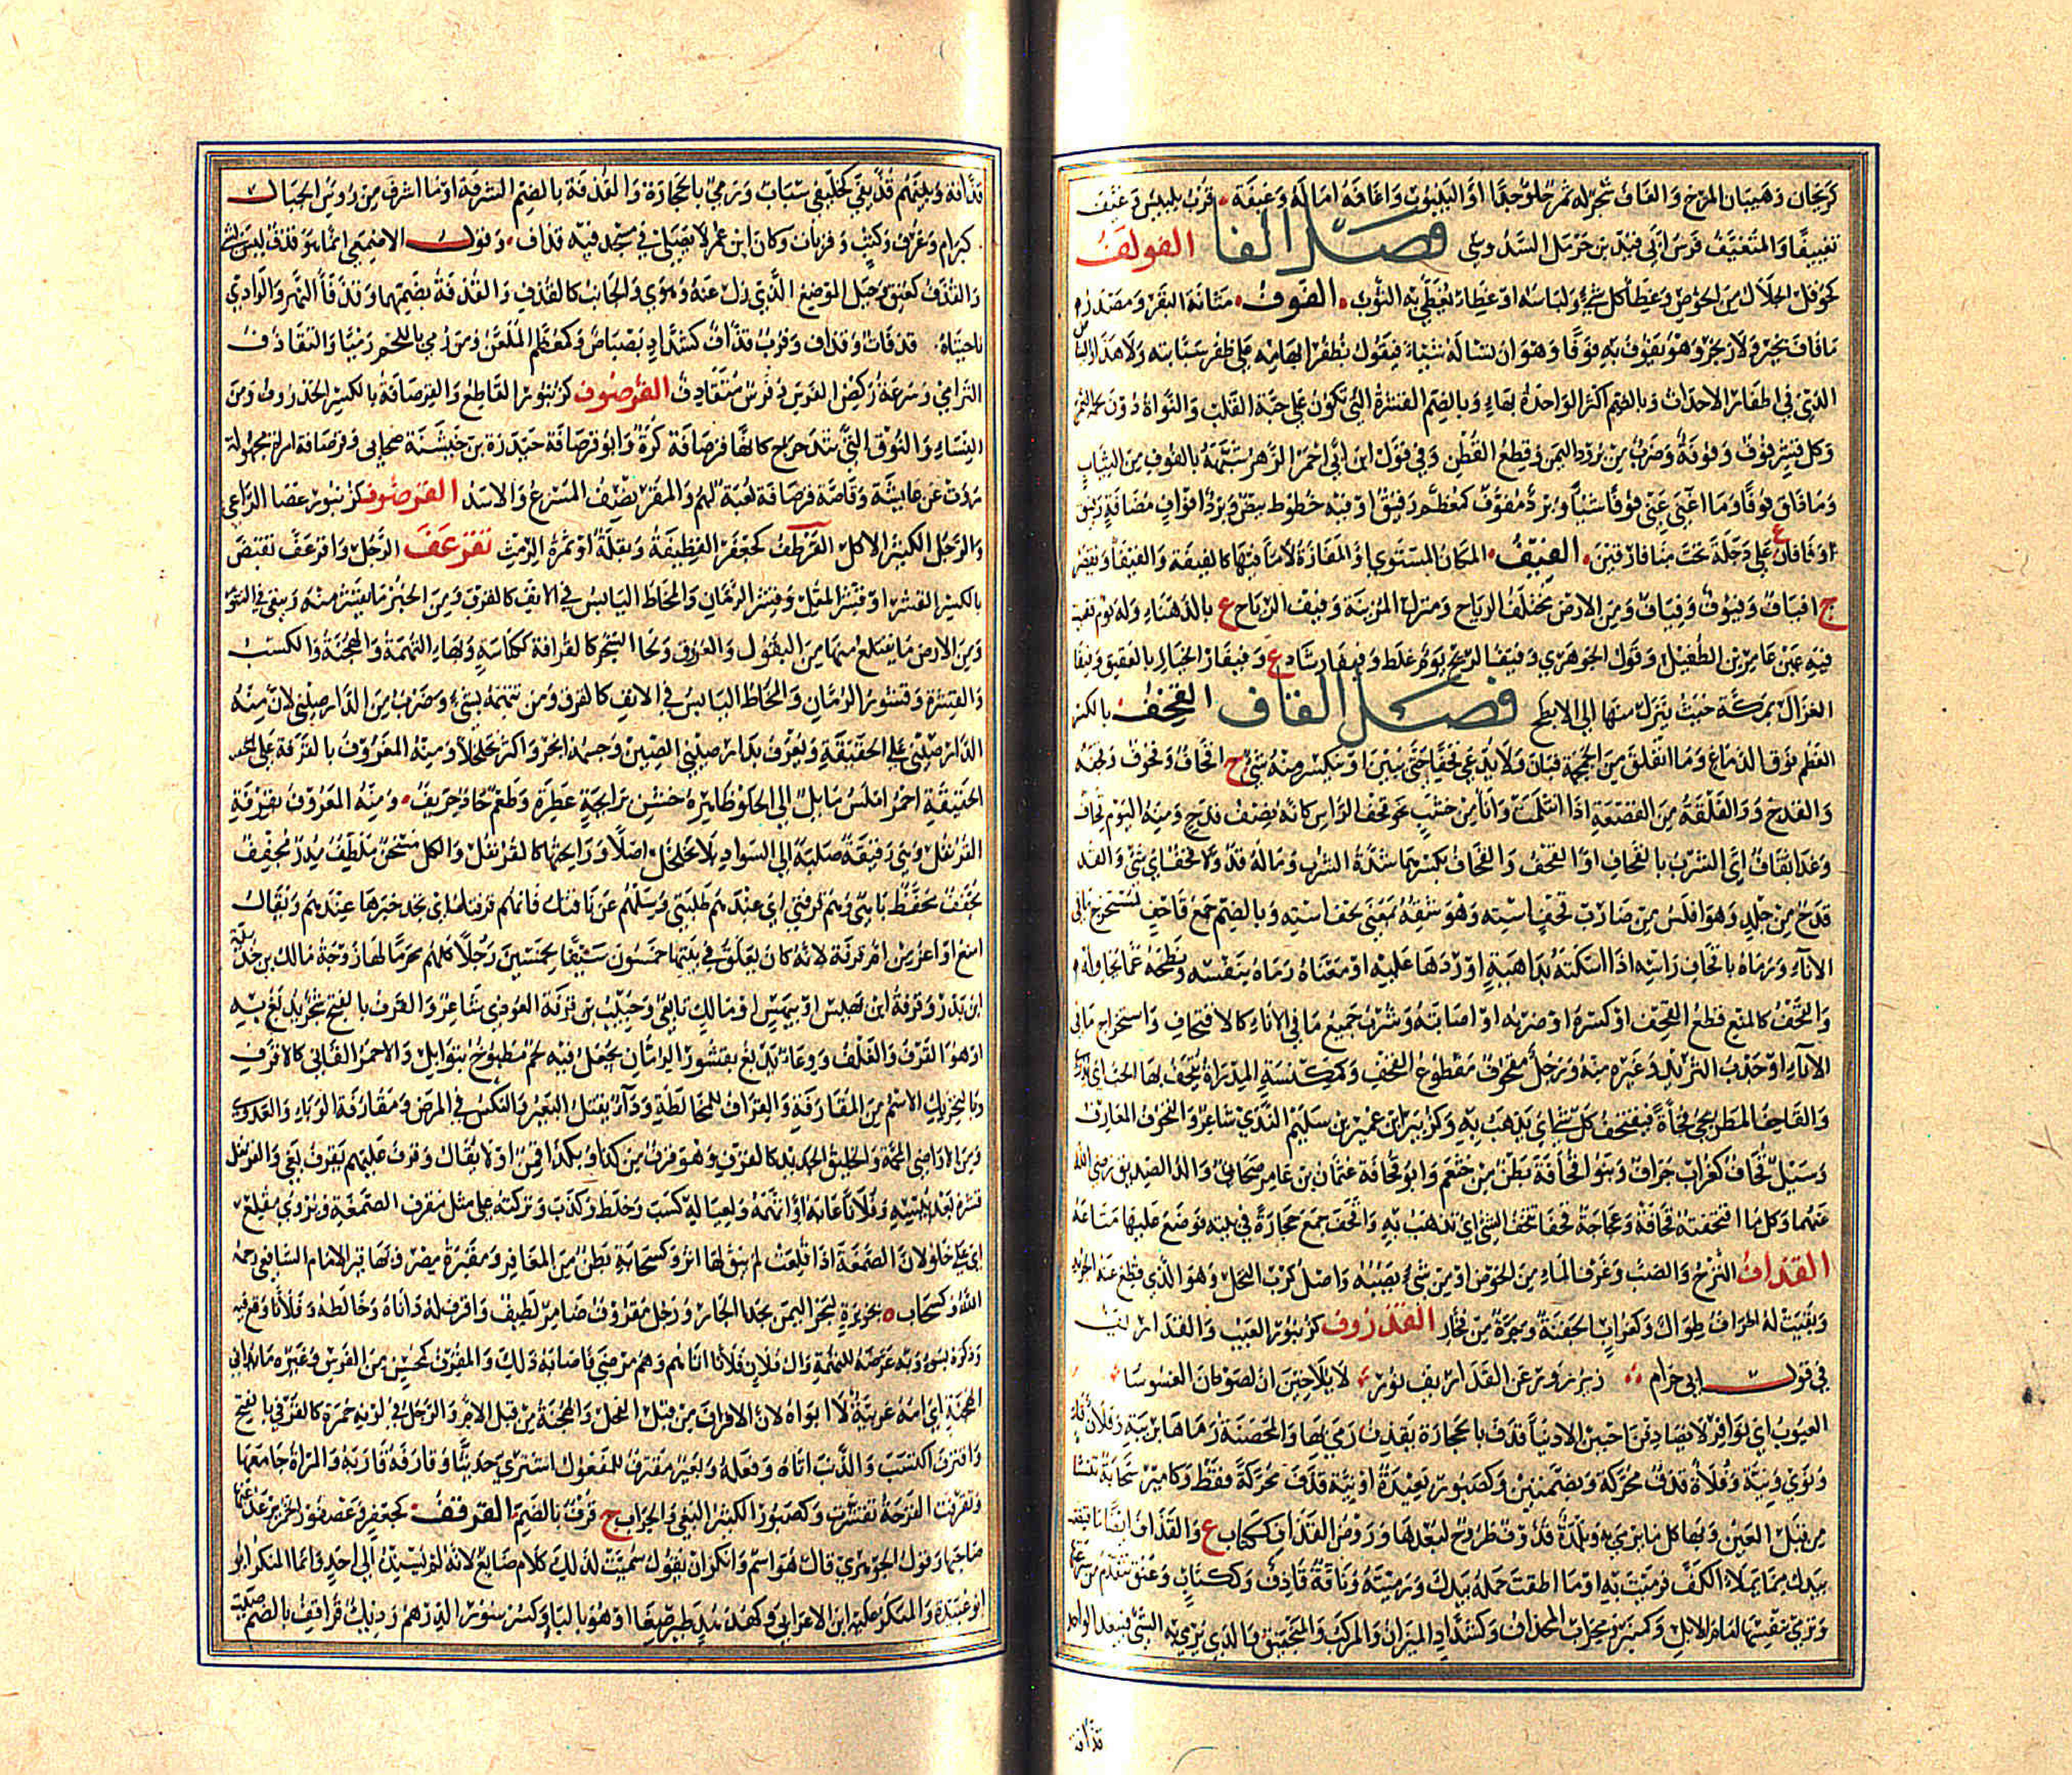 كريحان وهيبان المرخ والغاف شجر له ثمر حلو جدا او الينبوت واغافه اماله وغيفة قرب بلبيس وغيف
تغييفا والمتغيف فرس ابي فيد بن حرمل السدوسي فصل الفا الفولف
كحوفل الجلال من الخوص وغطا كل شئ ولباسه او غطاء يغطى به الثوب الفوف مثانة البقر ومصدر
ما فاف بخير ولا زنجر وهو يفوف به فوفا وهو ان يساله شيئا فيقول بظفر ابهامه على ظفر سبابته ولا هذا
الذي في اظفار الاحداث وبالضم اكثر الواحدة بهاء وبالضم القشرة التي تكون على حبة القلب والنواة دون لحمة التمر
وكل قشر فوف وفوفة وضرب من برود اليمن وقطع القطن وفي قول ابن احمر الزهر شبهه بالفوف من الثياب
وما ذاق فوفا وما اغنى عني فوفا شيئا وبرد مفوف كمعظم رقيق او فيه خطوط بيض وبرد افواف مضافة رقيق
او فافان ع على دجلة تحت ميافارقين الفيف المكان المستوي او المفازة لا ماء فيها كالفيفة والفيفاء ويقصر
ج افياف وفيوف وفياف ومن الارض مختلف الرياح ومنزل لمزينة وفيف الرياح ع بالدهناء وله يوم
فيه عين عامر بن الطفيل وقول الجوهري وفيف الريح يوم غلط وفيفا رشاد ع وفيفاء الخبار بالعقيق وفيفا
الغزال بمكة حيث ينزل منها الى الابطح فصل القاف القحف بالكسر
العظم فوق الدماغ وما انفلق من الجمجمة فبان ولا يدعى قحفا حتى يبين او ينكسر منه شئ ج اقحاف وقحوف وقحفة
والقدح والفلقة من القصعة اذا انثلمت واناء من خشب نحو قحف الراس كانه نصف قدح ومنه اليوم قحاف
وغدا نقاف اي الشرب بالقحاف او القحف والقحاف بكسرهما شدة الشرب وماله قد ولا قحف اي شئ والقد
قدح من جلد وهو افلس من ضارب قحف استه وهو شقه بمعنى لحف استه وبالضم جمع قاحف لمستخرج ما في
الاناء ورماه باقحاف راسه اذا اسكته بداهية اوردها عليه او معناه رماه بنفسه ونطحه عما يحاوله
والقحف كالمنع قطع القحف او كسره او ضربه او اصابته وشرب جميع ما في الاناء كالاقتحاف واستخراج ما في
الاناء او جذب الثريد وغيره منه ورجل مقحوف مقطوع القحف وكمكنسة المذراة يقحف بها الحب اي يذرى
والقاحف المطر يجئ فجأة فيقتحف كل شئ اي يذهب به وكزبير ابن عمير بن سليم الندي شاعر والقحوف المغارف
وسيل قحاف كغراب جراف وبنو قحافة بطن من خثعم وابو قحافة عثمان بن عامر صحابي والد الصديق رضي الله
عنهما وكل ما اقتحفته قحافة وعجاجة قحفا تقحف الشئ اي تذهب به واقحف جمع حجارة في بيته فوضع عليها متاعه
القداف النزح والصب وغرف الماء من الحوض او من شئ يصبه واصل كرب النخل وهو الذي قطع عنه الجريد
وبقيت له اطراف طوال وكغراب الجفنة وجرة من فخار القذروف كزنبور العيب والقذاريف
في قول ابي حزام زير زور عن القذاريف نور لا يلاحين ان لصون الغسوسا
العيوب اي نوافر لا يصادقن من الادنيا قذف بالحجارة يقذف رمى بها والمحصنة رماها بزنية وفلان قاء
ونوى ونية وفلاة قذف محركة وبضمتين وكصبور بعيدة او نية قذف محركة فقط وكامير سحابة تنشا
من قبل العين وبهاء كل ما يرمى به وبلدة قذوف طروح لبعدها وروض القذاف ككتاب ع والقذاف ايضا ما
بيدك مما يملا الكف فرميت به او ما اطقت حمله بيدك ورميته وناقة قاذف وككتاب وعنق تتقدم من سرعتها
وترمي بنفسها امام الابل وكمنبر ومحراب المجذاف وكشداد الميزان والمركب والمنجنيق والذي يرمى به الشئ فيبعد الواحدة
قذافة
قذافة وبينهم قذيفى كخليفى سباب ورمي بالحجارة والقذفة بالضم الشرفة او ما اشرف من رؤس الجبال
كبرام وغرف وكتب وقربات وكان ابن عمر لا يصلي في مسجد فيه قذاف وقول الاصمعي انما هو قذف ليس بشئ
والقذف كعنق وجبل الموضع الذي زل عنه وهوى والجانب كالقذف والقذفة بضمتهما وقذفا النهر والوادي
ناحيتاه قذفات وقذاف وقرب قذاف كشداد بصباص وكمعظم الملعن ومن رمي باللحم رميا والتقاذف
الترامي وسرعة ركض الفرس وفرس متقاذف القرصوف كزنبور القاطع والقرصافة بالكسر الخذروف ومن
النساء والنوق التي تتدحرج كانها كرة وابو قرصافة جندرة بن خيشنة صحابي وقرصافة امراة مجهولة
روت عن عايشة وقاصة قرصافة لعبة لهم والمقرنصف المسرع والاسد القرضوف كزنبور عصا الراعي
والرجل الكثير الاكل القرطف كجعفر القطيفة وبقلة او ثمرة الرمث تقرعف الرجل واقرعف تقبض
بالكسر القشر او قشر المقل وقشر الرمان والمخاط اليابس في الانف كالقرف ومن الخبز ما يتقشر منه ويبقى في التنور
ومن الارض ما يقتلع منها من البقول والعروق ولحا الشجر كالقرافة ككناسة وبهاء التهمة والهجنة والكسب
والقشرة وقشور الرمان والمخاط اليابس في الانف كالقرف ومن تتهمه بشئ وضرب من الدارصيني لان منه
الدارصيني على الحقيقة ويعرف بدارصيني الصين وجسمه اشحم واكثر تخلخلا ومنه المعروف بالقرفة على
الحقيقة احمر املس مايل الى الحلو ظاهره خشن برايحة عطرة وطعم حاد حريف ومنه المعروف بقرفة
القرنفل وهي رقيقة صلبة الى السواد بلا تخلخل اصلا ورايحتها كالقرنفل والكل مسخن ملطف مدر مجفف
محفظ باهي وهم قرفتي اي عندهم طلبتي وسلهم عن ناقتك فانهم قرفة اي تجد خبرها عندهم ويقال
امنع او اعز من ام قرفة لانه كان يعلق في بيتها خمسون سيفا لخمسين رجلا كلهم محرم لها زوجة مالك بن حذيفة
ابن بدر وقرفة ابن بهيس او بيهس او مالك تابعي وحبيب بن قرفة العوذي شاعر والقرف بالفتح شجر يدبغ به
او هو القرف والغلف ووعاء يدبغ بقشور الرمان يجعل فيه لحم مطبوخ بتوابل والاحمر القاني كالاقرف
وبالتحريك الاسم من المقارفة والقراف للمخالطة وداء يقتل البعير والنكس في المرض ومقارفة الوباء والعدوى
ومن الاراضي المحمة والخليق الجدير كالقرف وهو قرف من كذا وبكذا قمن او لا يقال وقرف عليهم يقرف بغى والقرنفل
قشره بعد يبسه وفلانا عابه او اتهمه ولعياله كسب وخلط وكذب وتركته على مثل مقرف الصمغة ويروى مقلع
اي على خلو لان الصمغة اذا قلعت لم يبق لها اثر وكسحابة بطن من المعافر ومقبرة مصر وبها قبر الامام الشافعي رحمه
الله وكسحاب جزيرة لبحر اليمن بحذا الجار ورجل مقروف ضامر لطيف واقرف له داناه وخالطه وفلانا وقع فيه
وذكره بسوء وبه عرضه للتهمة وال فلان فلانا اتاهم وهم مرضى فاصابه ذلك والمقرف كمحسن من الفرس وغيره ما يداني
الهجنة اي امه عربية لا ابوه لان الاقراف من قبل الفحل والهجنة من قبل الام والرجل في لونه حمرة كالقرفي بالفتح
واقترف اكتسب والذنب اتاه وفعله وبعير مقترف للمفعول اشتري حديثا وقارفه قاربه والمراة جامعها
وتقرفت القرحة تقشرت وكصبور الكثير البغي والجراب ج قرف بالضم القرقف كجعفر وعصفور الخمر يرعد عنها
صاحبها وقول الجوهري قال هو اسم وانكر ان يقول سميت لذلك كلام ضايع لانه لم يسنده الى احد وانما المنكر ابو
ابو عبيدة والمنكر عليه ابن الاعرابي وكهدهد طير صغار او هو بالباء وكسرسور الدرهم وديك قراقف بالضم صيت